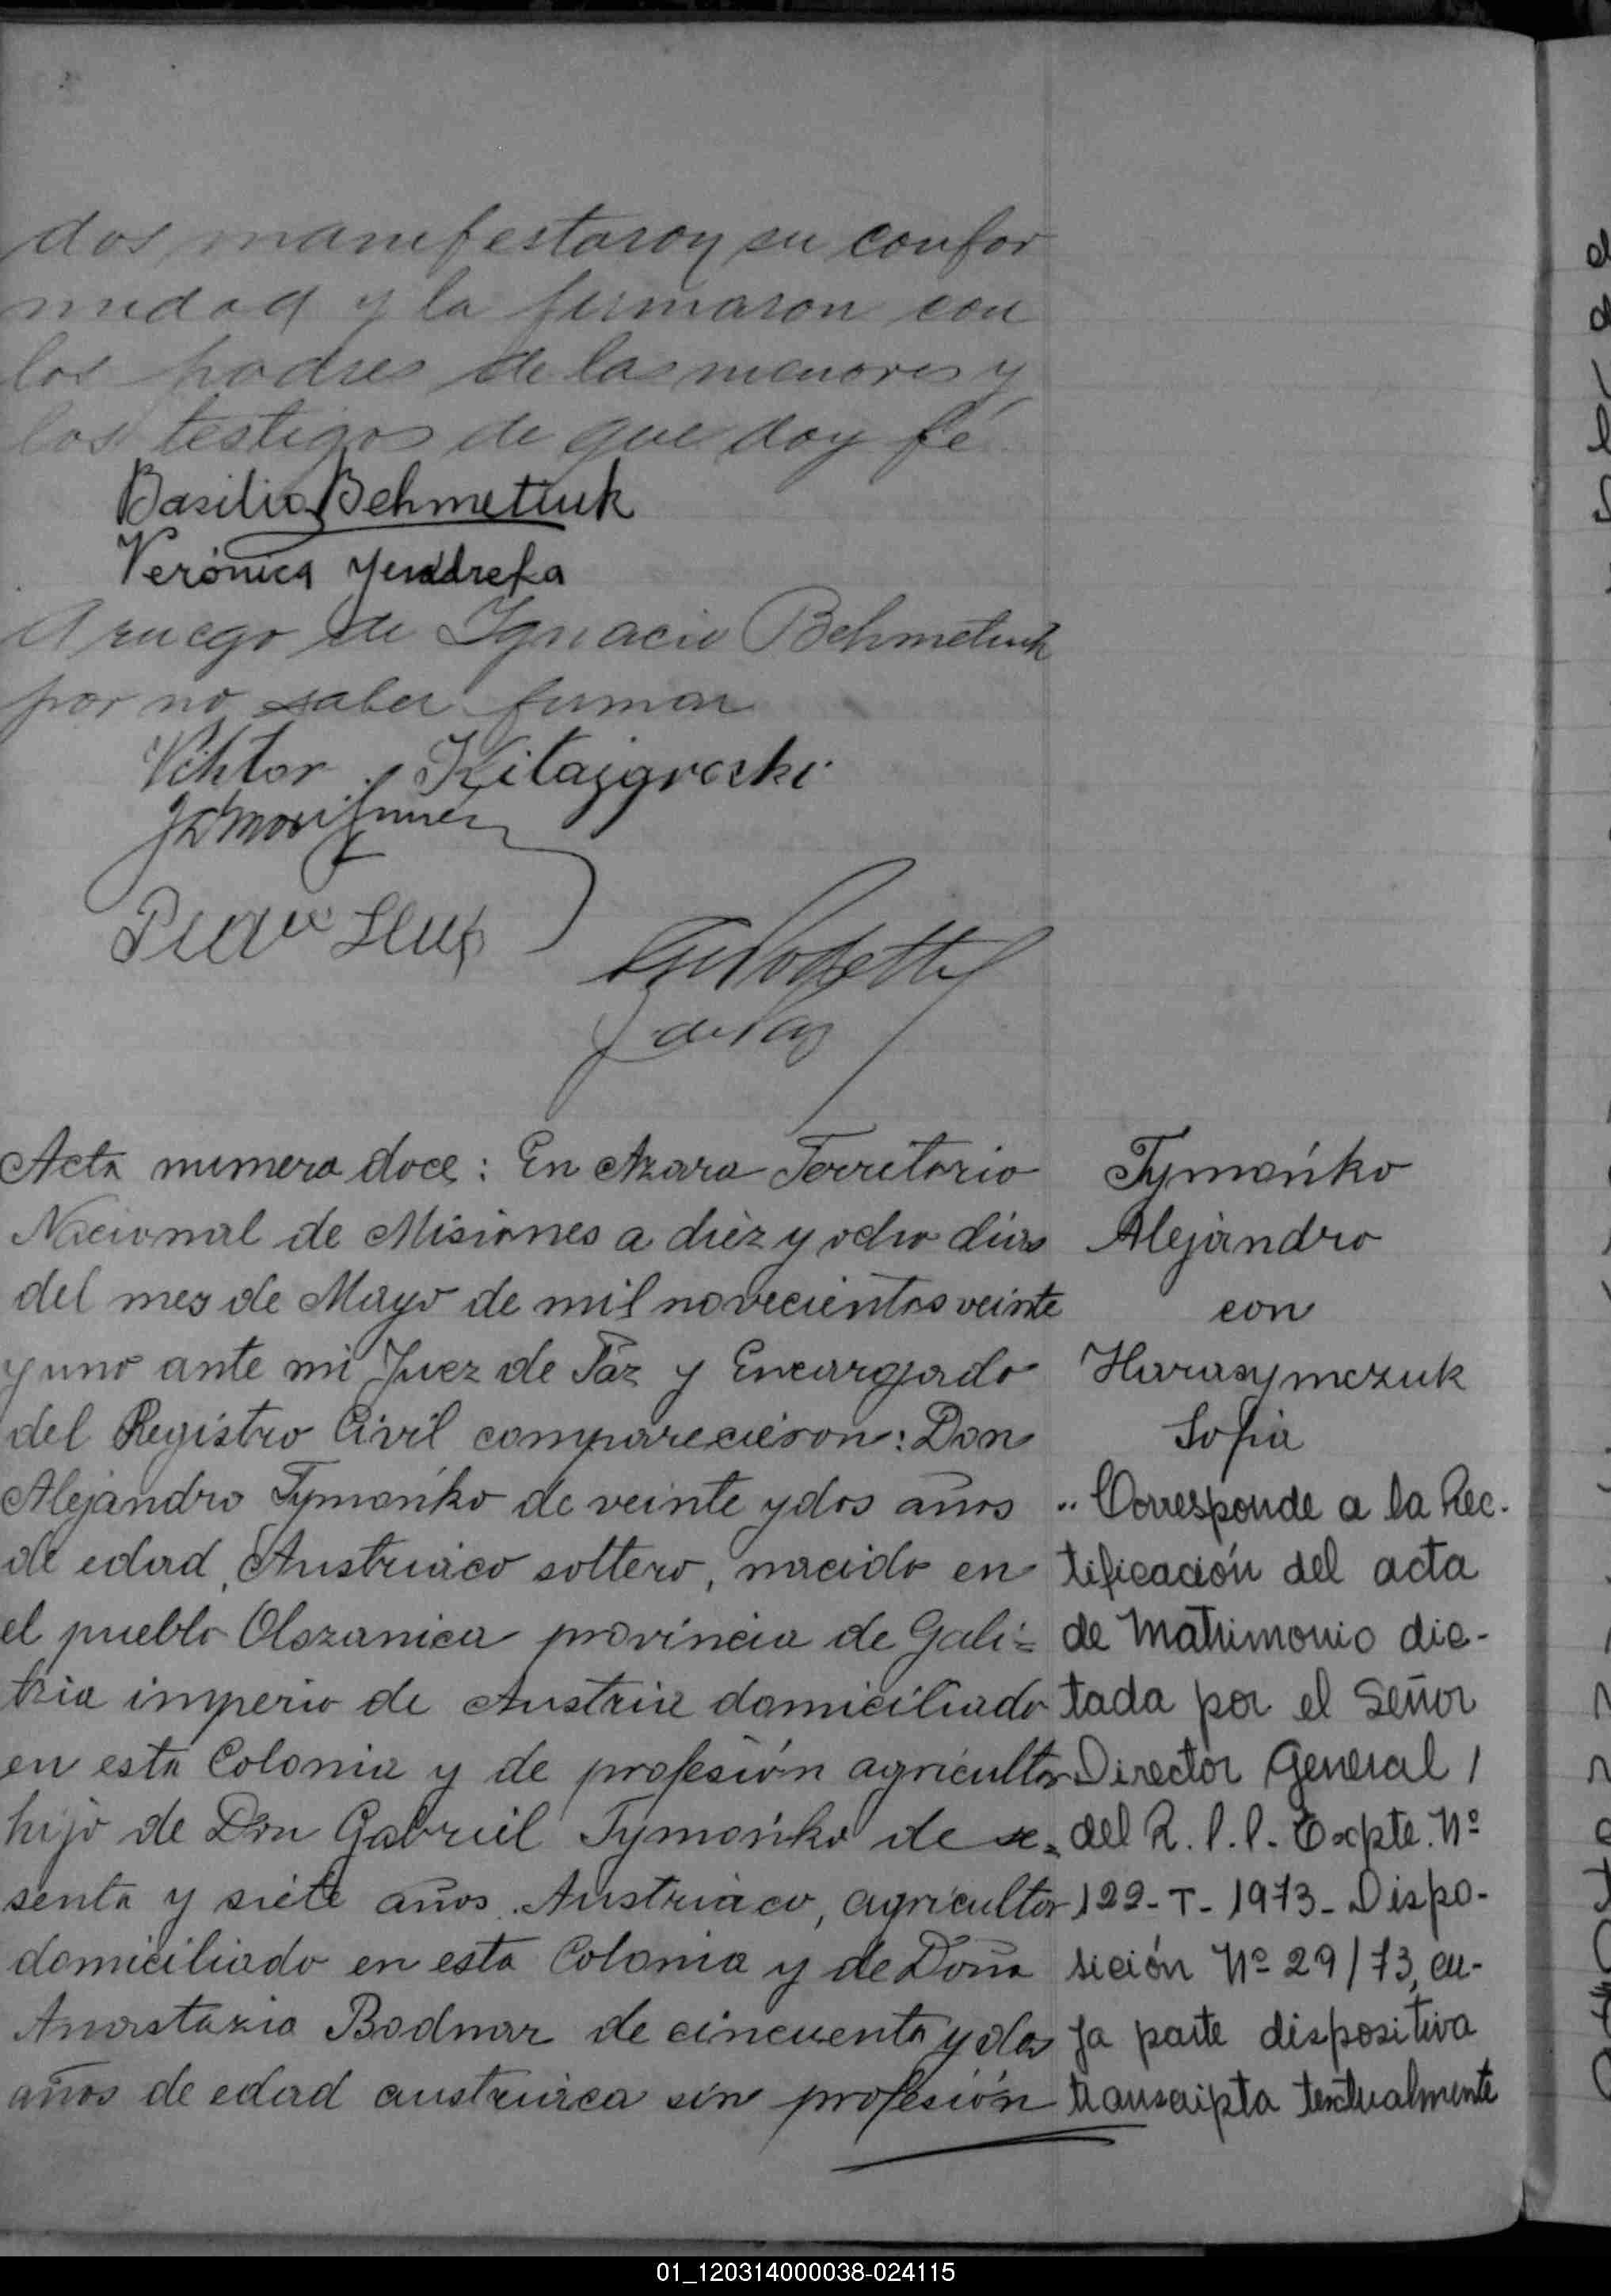 dos manifestaron su confor
midad y la firmaron con
los padres de los menores y
los testigos de que doy fé
Basilio Behmetiuk
Verónica Jendreka
A ruego de Ignacio Behmetiuk
por no saber firmar
Viktor Kitajgrocki
J. de Paz
Acta numero doce: En Azara Territorio
Nacional de Misiones a diez y ocho dias
del mes de Mayo de mil novecientos veinte
y uno ante mi Juez de Paz y Encargado
del Registro Civil comparecieron: Don
Alejandro Tymońko de veinte y dos años
de edad, Austriaco soltero, nacido en
el pueblo Olszanica provincia de Gali=
tzia imperio de Austria domiciliado
en esta Colonia y de profesión agricultor
hijo de Don Gabriel Tymońko de se=
senta y siete años Austriaco, agricultor
domiciliado en esta Colonia y de Doña
Anastazia Bodnar de cincuenta y dos
años de edad austriaca sin profesión
Tymońko
Alejandro
con
Harasymczuk
Sofia
"Corresponde a la Rec-
tificación del acta
de Matrimonio dic-
tada por el Señor
Director General
del R. P. P. Expte. Nº
122-T-1973- Dispo-
sición Nº 29/73, cu-
ya parte dispositiva
transcripta textualmente
01_120314000038-024115